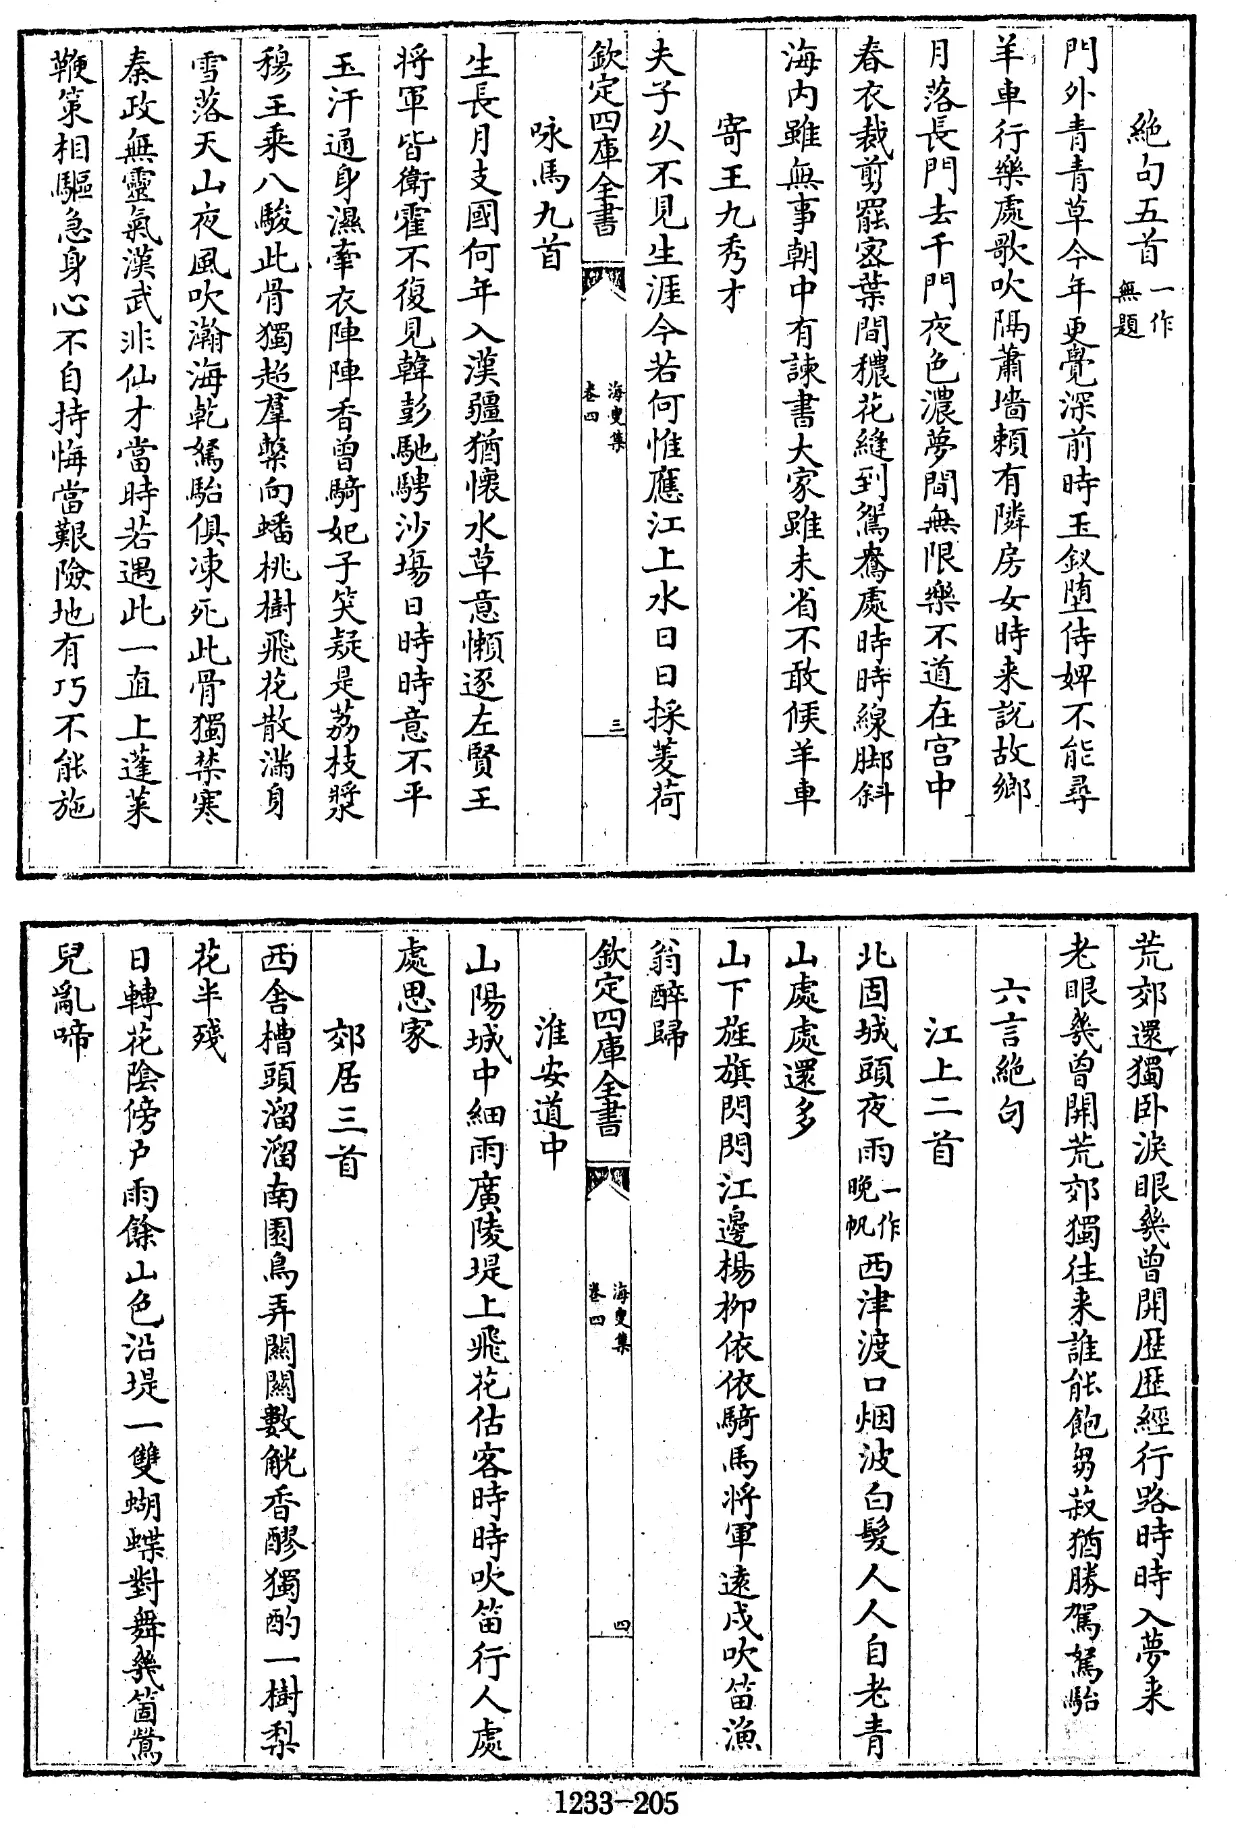 絶句五首一作無題
門外青青草今年更覺深前時玉釵堕侍婢不能尋
羊車行樂處歌吹隔蕭墻頼有隣房女時来說故鄉
月落長門去千門夜色濃夢間無限樂不道在宫中
春衣裁剪罷密葉間穠花縫到鴛鴦處時時線脚斜
海内雖無事朝中有諫書大家雖未省不敢候羊車
寄王九秀才
夫子久不見生涯今若何惟應江上水日日採菱荷
欽定四庫全書
海叟集
卷四
三
咏馬九首
生長月支國何年入漢疆猶懷水草意懶逐左賢王
将軍皆衛霍不復見韓彭馳騁沙場日時時意不平
玉汗通身濕牽衣陣陣香曾騎妃子笑疑是荔枝漿
穆王乘八駿此骨獨超羣槩向蟠桃樹飛花散滿身
雪落天山夜風吹瀚海乾駑駘俱凍死此骨獨禁寒
秦政無靈氣漢武非仙才當時若遇此一直上蓬莱
鞭策相驅急身心不自持悔當艱險地有巧不能施
荒郊還獨卧淚眼幾曾開歷歷經行路時時入夢来
老眼幾曾開荒郊獨往来誰能飽芻菽猶勝駕駑駘
六言絶句
江上二首
北固城頭夜雨一作晚帆西津渡口烟波白髮人人自老青
山處處還多
山下旌旗閃閃江邊楊柳依依騎馬将軍遠戍吹笛漁
翁醉歸
欽定四庫全書
海叟集
卷四
四
淮安道中
山陽城中細雨廣陵堤上飛花估客時時吹笛行人處
處思家
郊居三首
西舍槽頭溜溜南園鳥弄關關數觥香醪獨酌一樹梨
花半殘
日轉花陰傍户雨餘山色沿堤一雙蝴蝶對舞幾箇鶯
兒亂啼
1233-205